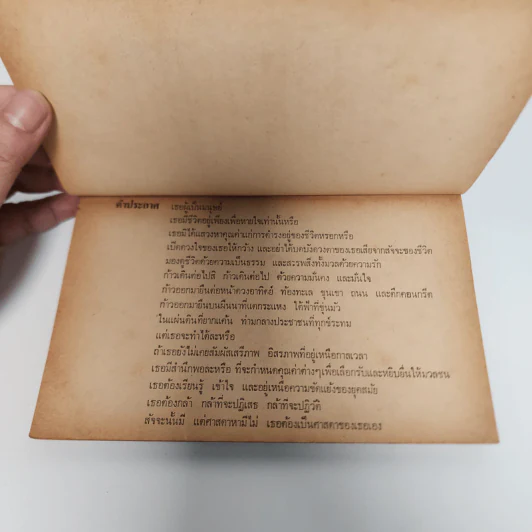 คำประกาศ เธอผู้เป็นมนุษย์
เธอมีชีวิตอยู่เพียงเพื่อหายใจเท่านั้นหรือ
เธอมิได้แสวงหาคุณค่าแก่การดำรงอยู่ของชีวิตหรอกหรือ
เปิดดวงใจของเธอให้กว้าง และอย่าได้บดบังดวงตาของเธอเสียจากสัจจะของชีวิต
มองดูชีวิตด้วยความเป็นธรรม และสรรพสิ่งทั้งมวลด้วยความรัก
ก้าวเดินต่อไปสิ ก้าวเดินต่อไป ด้วยความมั่นคง และมั่นใจ
ก้าวออกมายืนต่อหน้าดวงอาทิตย์ ท้องทะเล ขุนเขา ถนน และตึกคอนกรีต
ก้าวออกมายืนบนผืนนาที่แตกระแหง ใต้ฟ้าที่ขุ่นมัว
ในแผ่นดินที่ยากแค้น ท่ามกลางประชาชนที่ทุกข์ระทม
แต่เธอจะทำได้ละหรือ
ถ้าเธอยังไม่เคยสัมผัสเสรีภาพ อิสรภาพที่อยู่เหนือกาลเวลา
เธอมีสำนึกพอละหรือ ที่จะกำหนดคุณค่าต่างๆเพื่อเลือกรับและหยิบยื่นให้มวลชน
เธอต้องเรียนรู้ เข้าใจ และอยู่เหนือความขัดแย้งของยุคสมัย
เธอต้องกล้า กล้าที่จะปฏิเสธ กล้าที่จะปฏิวัติ
สัจจะนั้นมี แต่ศาสดาหามีไม่ เธอต้องเป็นศาสดาของเธอเอง